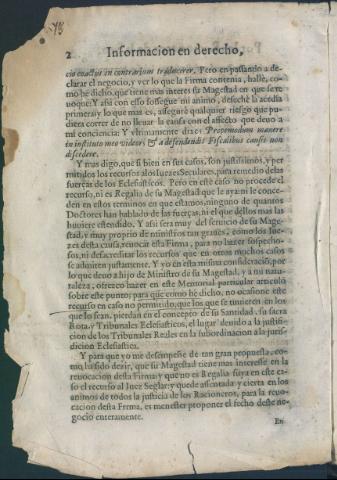 2 Informacion en derecho,
cio coactus in contrarium traducerer. Pero en passando a de-
clarar el negocio, y ver lo que la Firma contenia, hallè, co-
mo he dicho, que tiene mas interes su Magestad en que se re
uoque: Y assi con esso sosegue mi animo, desechè la acedia
primera y lo que mas es, asseguré qualquier riesgo que pu-
diera correr de no lleuar la causa con el affecto que deuo a
mi conciencia: Y vltimamente dixe: Propemodum manere
in instituto meo videor; & a defendendis Fiscalibus causis non
discedere.
Y mas digo, que si bien en sus casos, son justissimos, y per
mitidos los recursos a los Iuezes Seculares, para remedio de las
fuerças de los Eclesiasticos. Pero en este caso no procede el
recurso, ni es Regalia de su Magestad que le ayan le conce-
den en estos terminos en que estamos, ninguno de quantos
Doctores han hablado de las fuerças, ni el que dellos mas las
huuiere estendido. Y assi sera muy del seruicio de su Mage-
stad, y muy proprio de ministros tan graues, como los Iue-
zes desta causa, reuocar esta Firma, para no hazer sospecho-
sos, ni desacreditar los recursos que en otros muchos casos
se admiten justamente. Y yo en esta misma consideracion, por
lo que deuo a hijo de Ministro de su Magestad, y a mi natu-
raleza, ofrezco hazer en este Memorial particular articulo
sobre este punto; para que como he dicho, no ocasione este
recurso en caso no permitido, que los que se tuuieren en los
que lo sean, pierdan en el concepto de su Santidad, su sacra
Rota, y Tribunales Eclesiasticos, el lugar deuido a la justifi-
cion de los Tribunales Reales en la subordinacion a la juris-
diction Eclesiastica.
Y para que yo me desempeñe de tan gran propuesta, co-
mo ha sido dezir, que su Magestad tiene mas interesse en la
reuocacion desta Firma: y que no es Regalia suya en este ca-
so el recurso al Iuez Seglar: y quede assentada y cierta en los
animos de todos la justicia de los Racioneros, para la reuo-
cacion desta Firma, es menester proponer el fecho deste ne-
gocio enteramente.
En